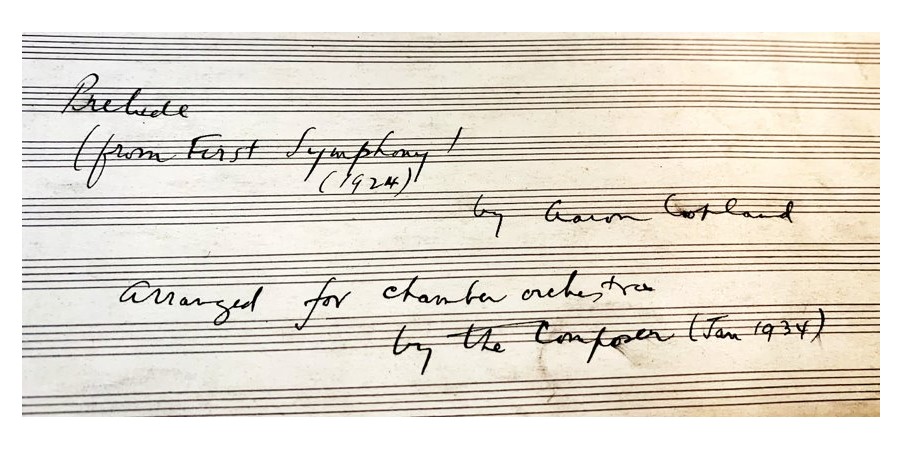 Prelude
(from First Symphony)
(1924)
by Aaron Copland
Arranged for chamber orchestra
by the Composer (Jan 1934)